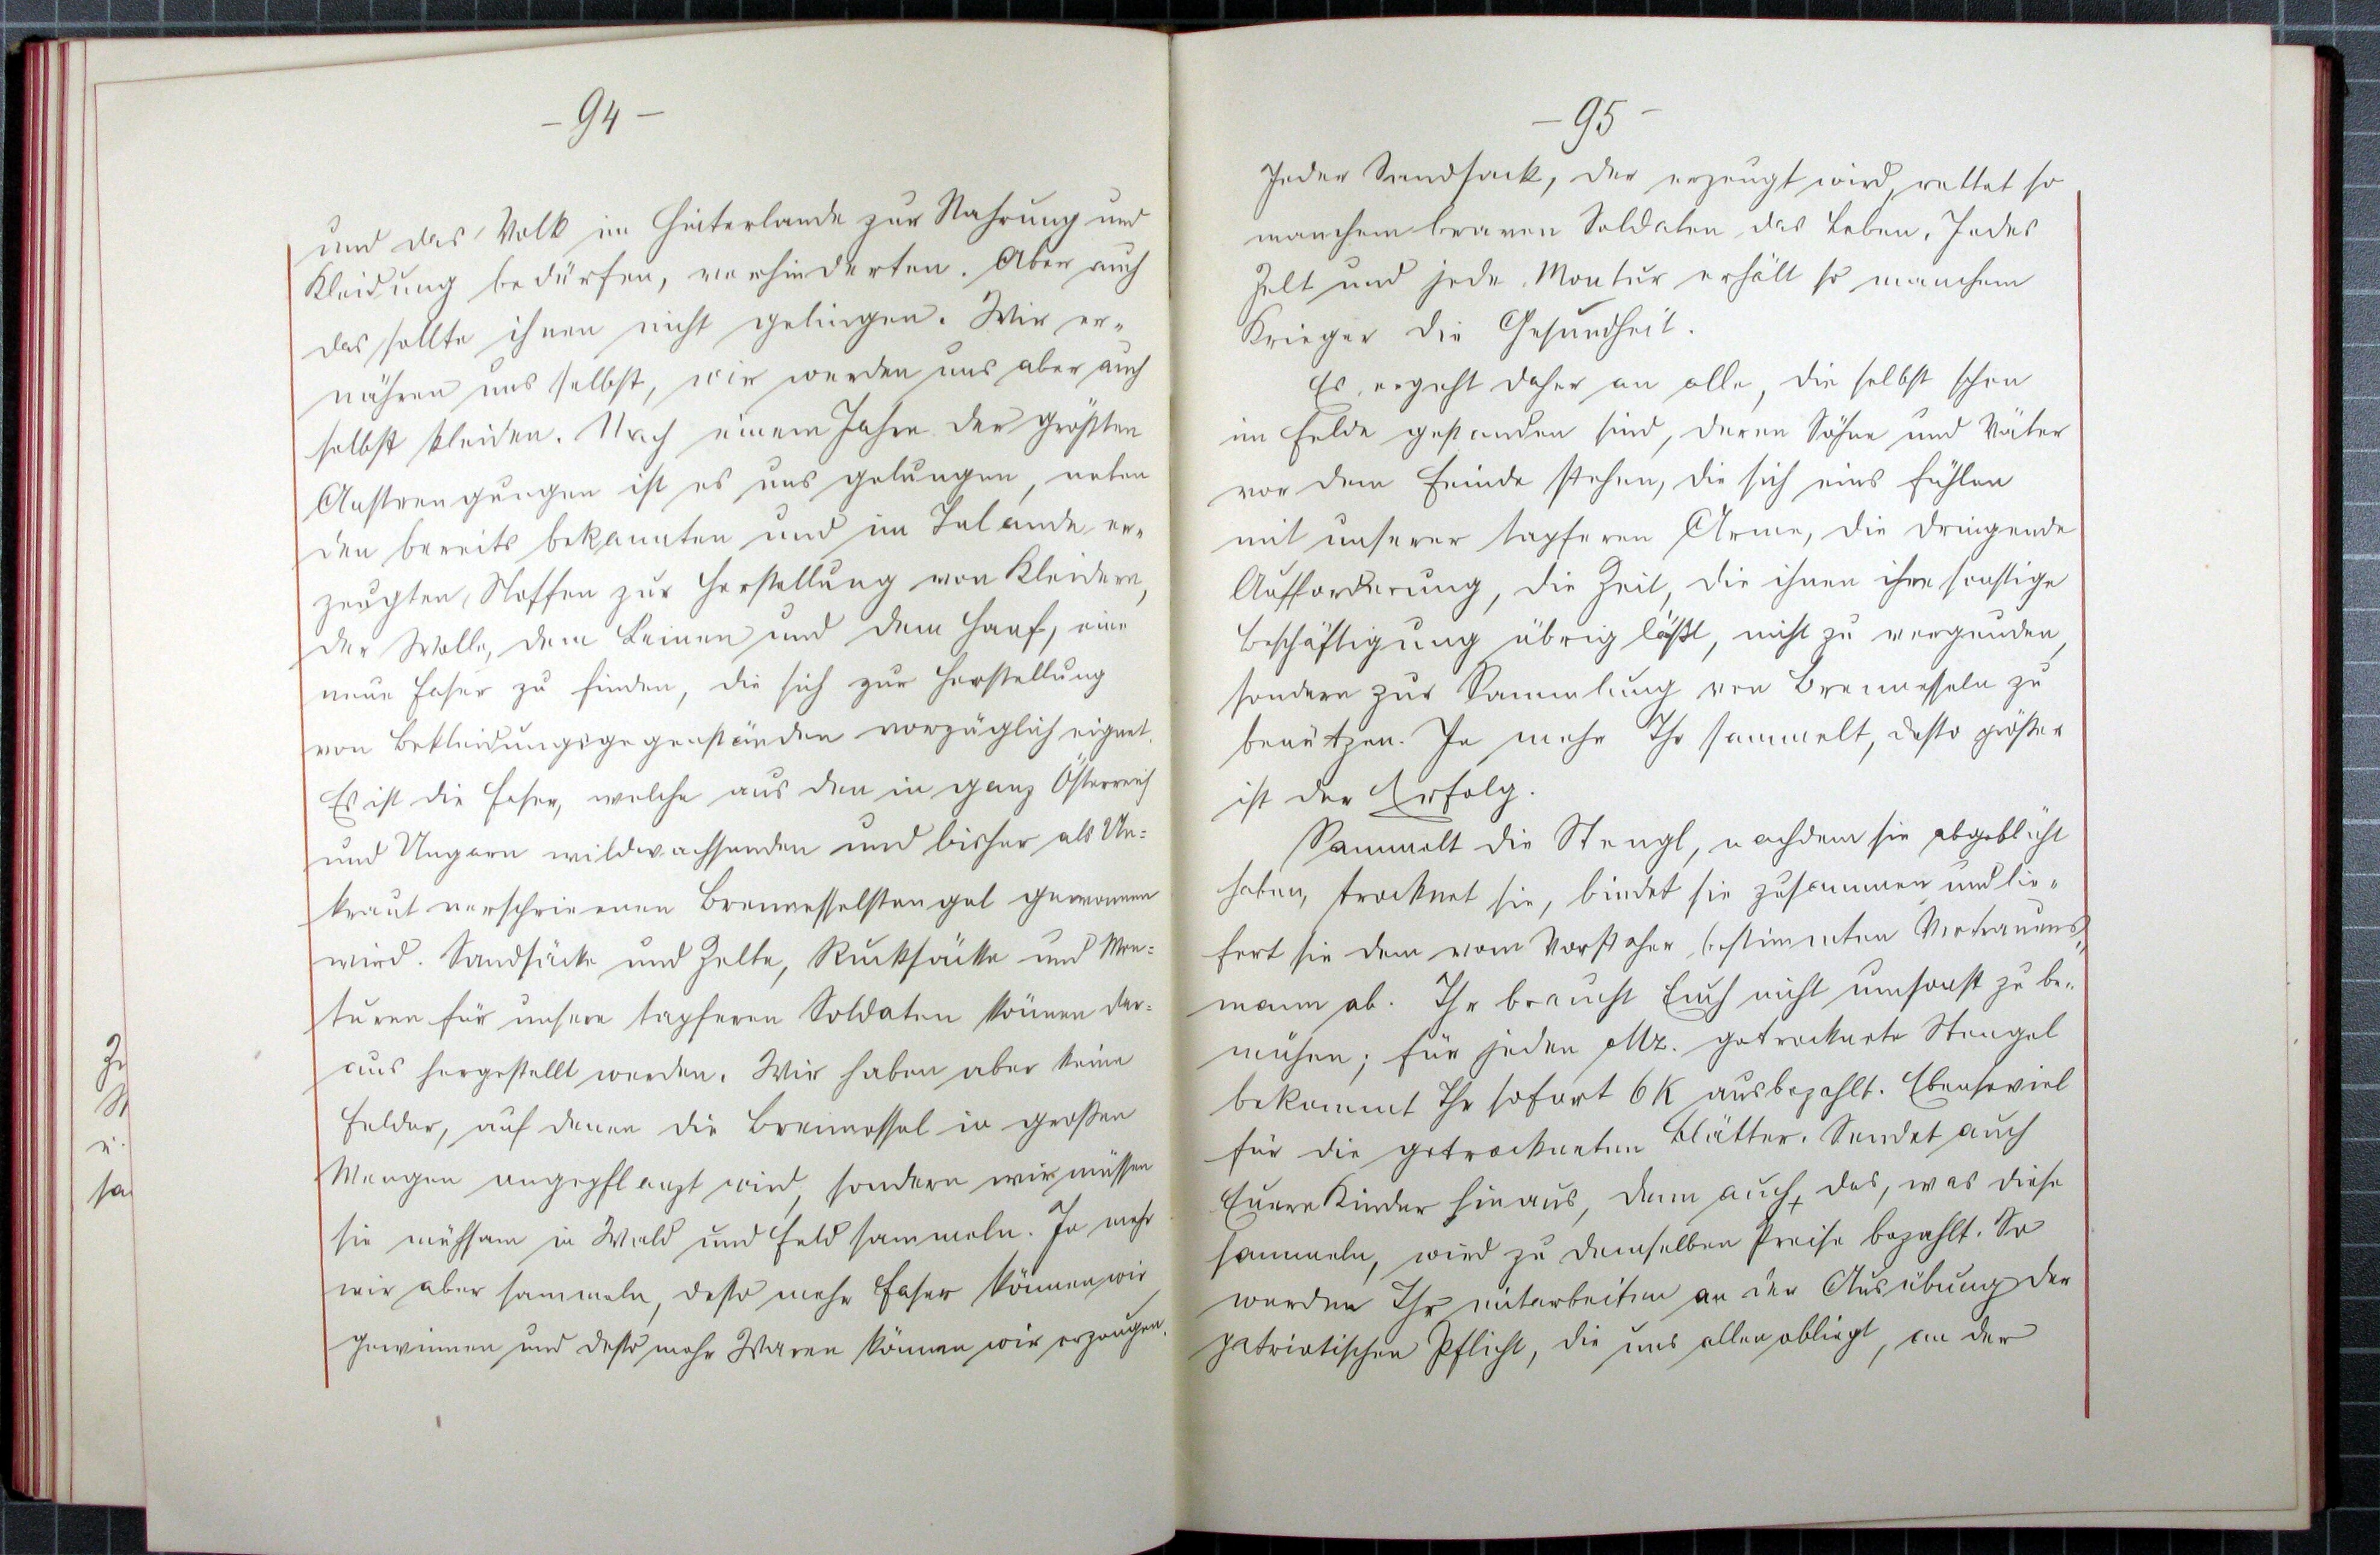 - 94 -
und das Volk im Hinterlande zur Nahrung und
Kleidung bedürfen, verhinderten. Aber auch
das sollte ihnen nicht gelingen. Wir er-
nähren uns selbst, wir werden uns aber auch
selbst kleiden. Nach einem Jahre der größten
Anstrengungen ist es uns gelungen, neben
den bereits bekannten und im Inlande er-
zeugten Stoffen zur Herstellung von Kleidern,
der Wolle, dem Leinen und dem Hanf, eine
neue Faser zu finden, die sich zur Herstellung
von Bekleidungsgegenständen vorzüglich eignet.
Es ist die Faser, welche aus den in ganz Österreich
und Ungarn wildwachsenden und bisher als Un=
kraut verschrieenen Brennesselstengel gewonnen
wird. Sandsäcke und Zelte, Rucksäcke und Mon=
turen für unsere tapferen Soldaten können dar=
aus hergestellt werden. Wir haben aber keine
Felder, auf denen die Brennessel in großen
Mengen angepflanzt wird, sondern wir müssen
sie mühsam in Wald und Feld sammeln. Je mehr
wir aber sammeln, desto mehr Faser können wir
gewinnen und desto mehr Waren können wir erzeugen.
- 95 -
Jeder Sandsack, der erzeugt wird, rettet so
manchem braven Soldaten das Leben. Jedes
Zelt und jede Montur erhält so manchem
Krieger die Gesundheit.
Es ergeht daher an alle, die selbst schon
im Felde gestanden sind, deren Söhne und Väter
vor dem Feinde stehen, die sich eins fühlen
mit unserer tapferen Armee, die dringende
Aufforderung, die Zeit, die ihnen ihre sonstige
Beschäftigung übrig läßt, nicht zu vergeuden,
sondern zur Sammlung von Brennesseln zu
benützen. Je mehr Ihr sammelt, desto größer
ist der Erfolg.
Sammelt die Stengl, nachdem sie abgeblüht
haben, trocknet sie, bindet sie zusammen und lie-
fert sie dem vom Vorsteher bestimmten Vertrauens-
mann ab. Ihr braucht Euch nicht umsonst zu be-
mühen; für jeden Mz. getrocknete Stengel
bekommt Ihr sofort 6 K ausbezahlt. Ebensoviel
für die getrockneten Blätter. Sendet auch
Euere Kinder hinaus, denn auch das, was diese
sammeln, wird zu demselben Preise bezahlt. So
werden Ihr mitarbeiten an der Ausübung der
patriotischen Pflicht, die uns allen obliegt, an der